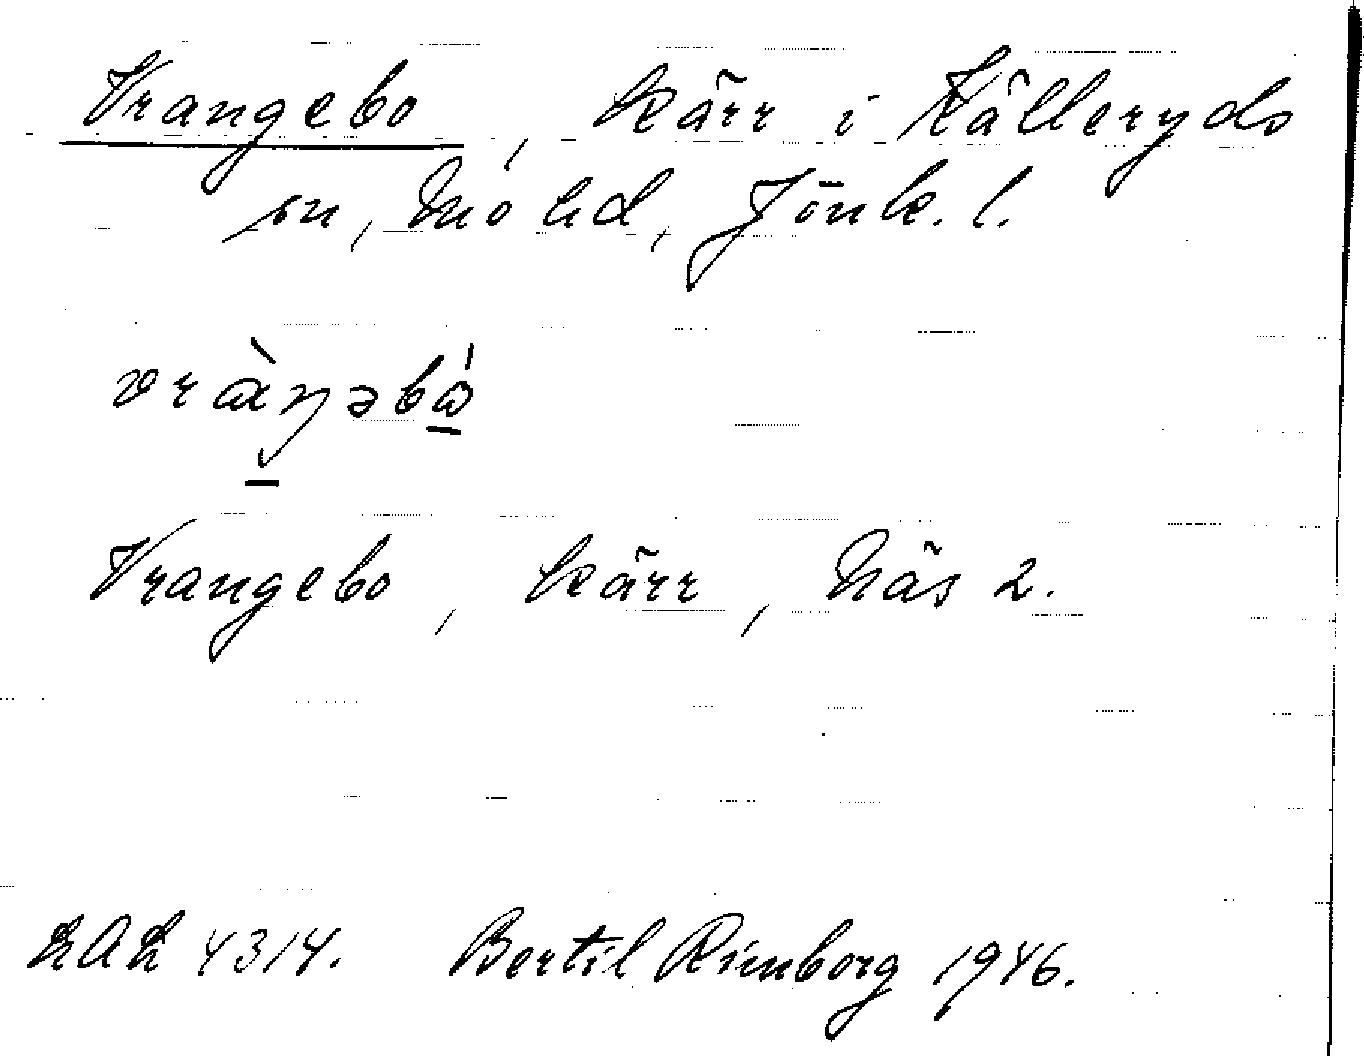 Vrangebo, kärr i Källeryds
sn, Mo hd, Jönk. l.
vràŋəbó
Vrangebo, kärr, Näs 2.
LAL 4314. Bertil Rimborg 1946.